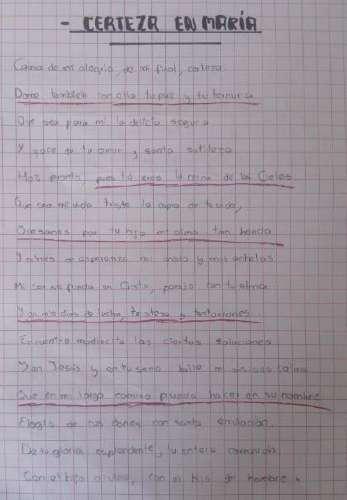 - CERTEZA EN MARÍA
Causa de mi alegria, de mi final, certeza.
Dame tambien con ella tu paz y tu ternura
Que sea para mi la delicia segura
Y goce de tu amor y santa sutileza
Haz pronto, pues tú eres la reina de los Cielos
Que sea mi vida hasta la
Que sanes por tu hijo mi alma tan honda
Y colmes de esperanza mi y mis anhelos
Mi con se funda en Cristo, parejo con tu alma
Y en mis dias de lucha, tristeza y tentaciones
Encuentre mediante las ciertas soluciones
Dan Jesús y en tu seno halle mi ansiada calma
Que en mi largo camino pueda hacer en su nombre
Elogio de sus dones con santa emulación.
De tu gloria esplendente, tu entera comunión
Con el hijo divino, con el hijo del hombre